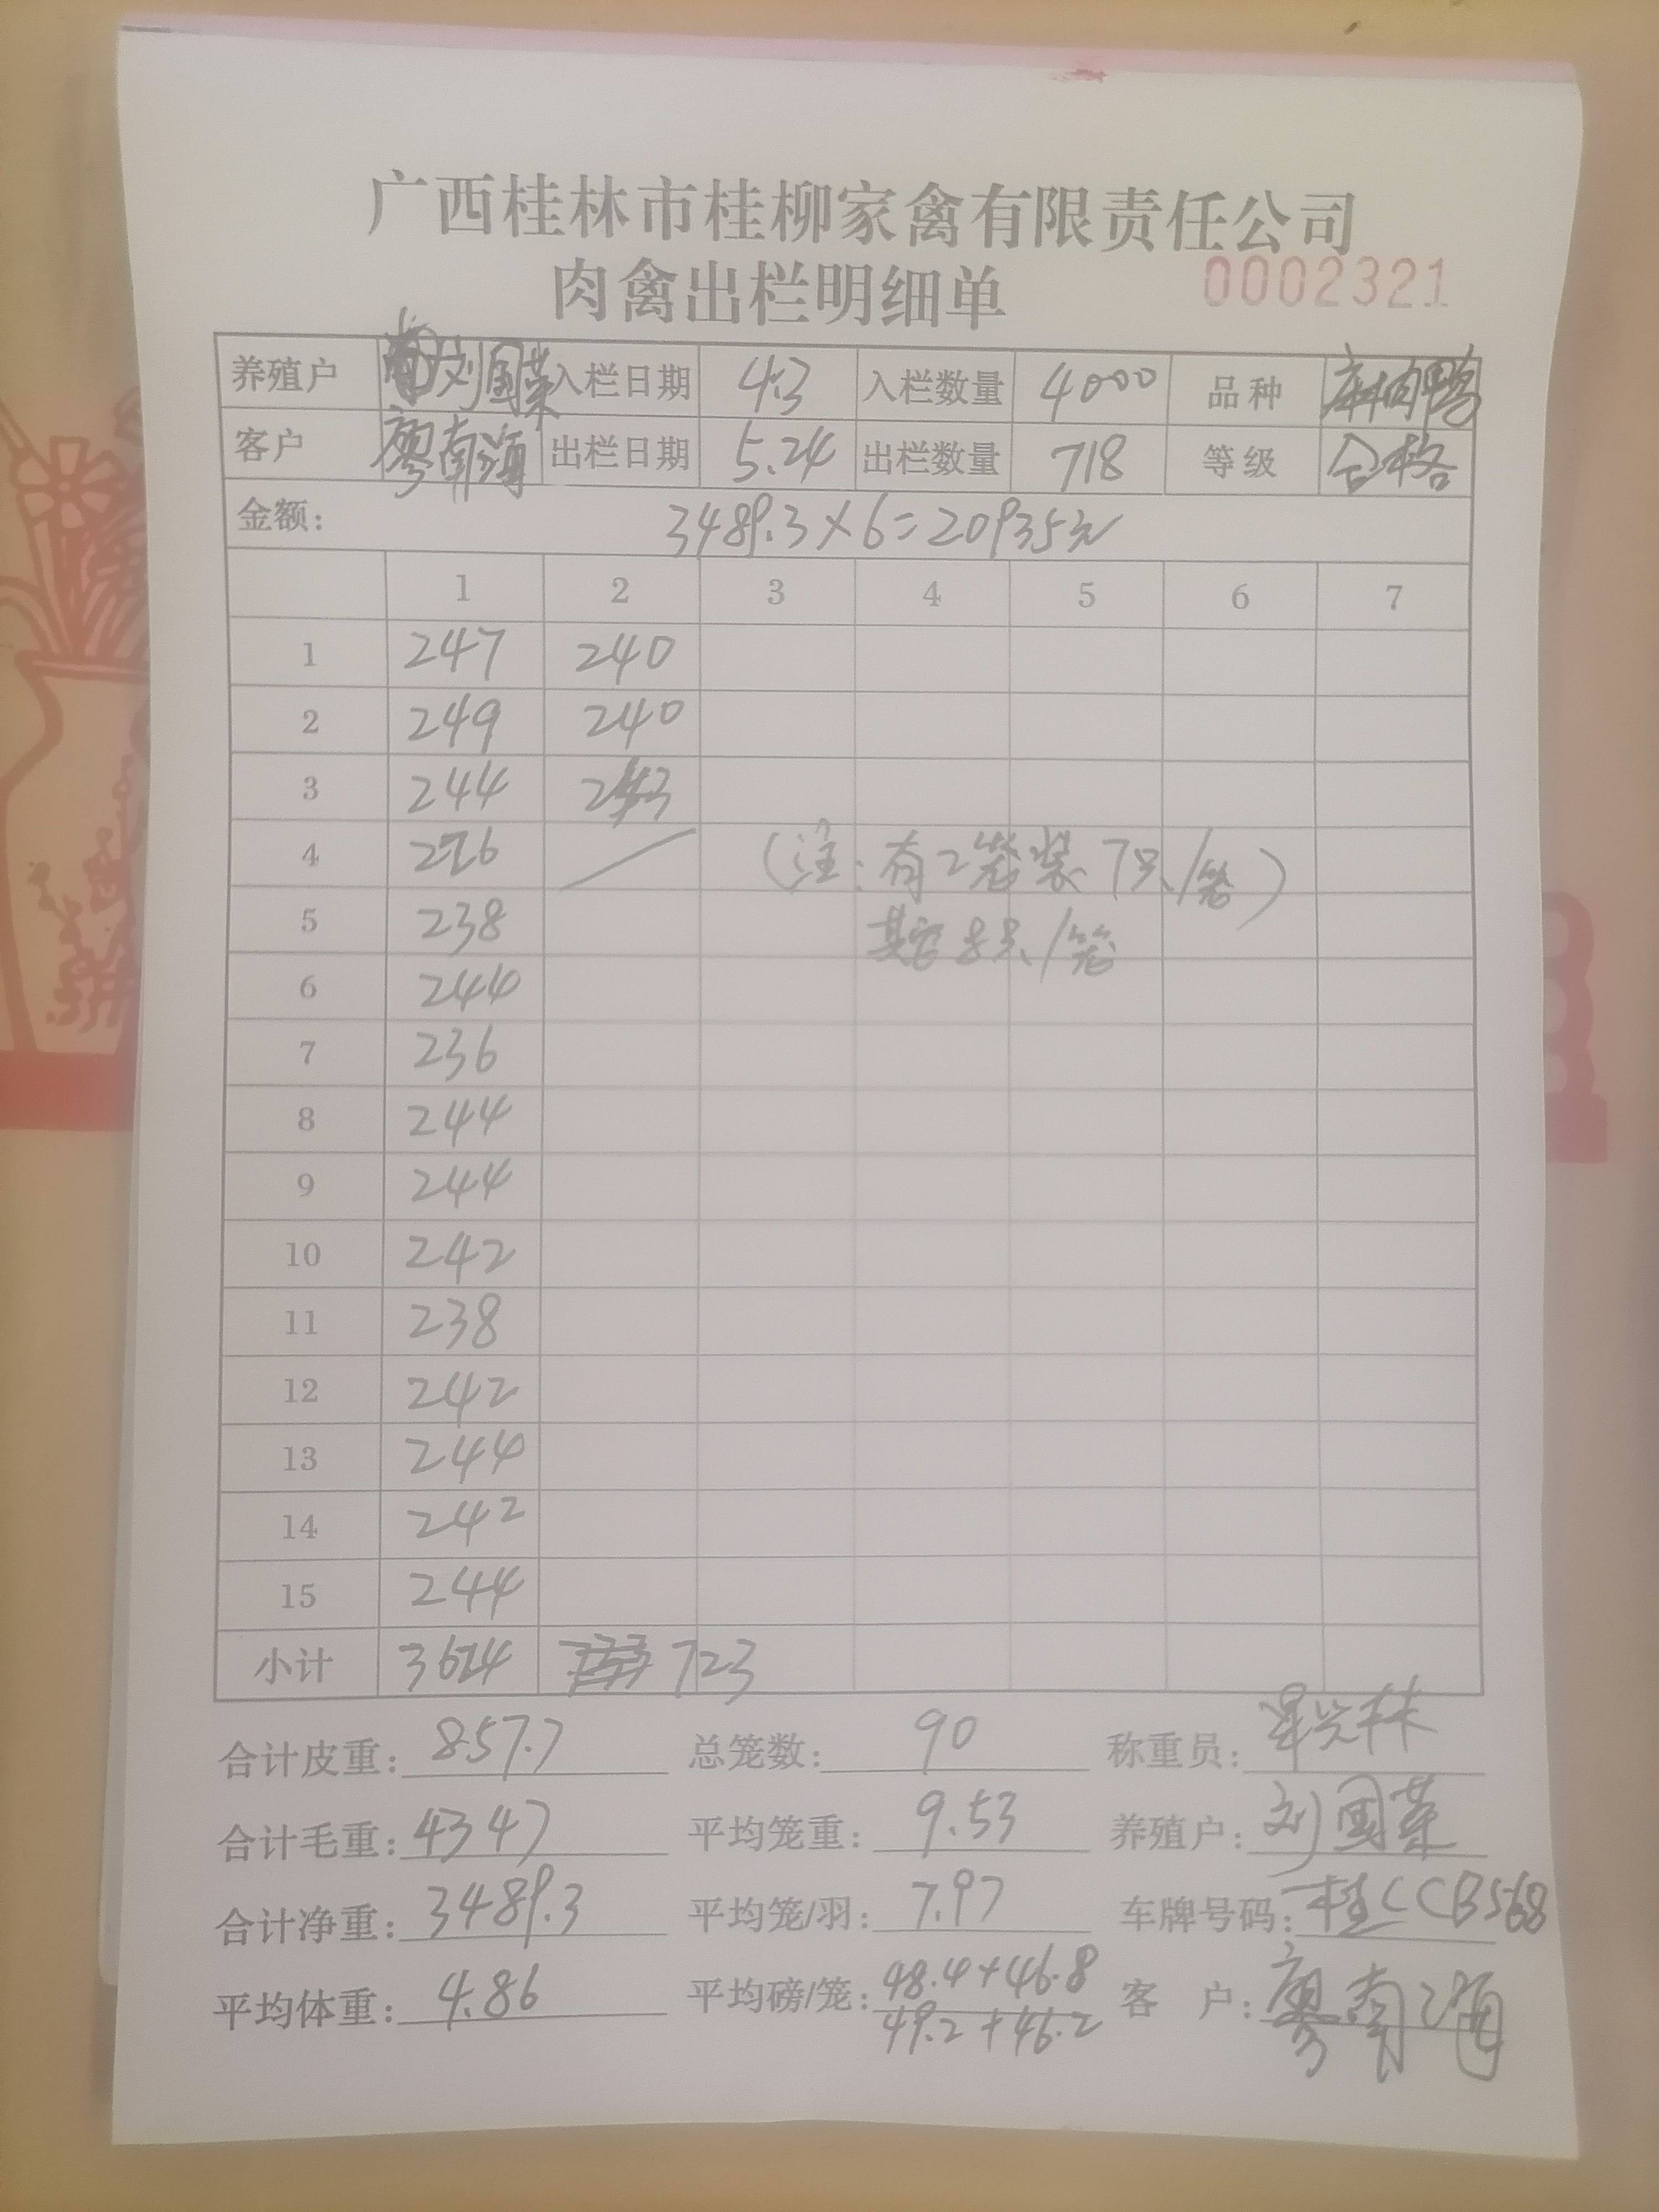 广西桂林市桂柳家禽有限责任公司
肉禽出栏明细单 0002321
养殖户 刘国荣 入栏日期 4.3 入栏数量 4000 品种 麻肉鸭
客户 廖南海 出栏日期 5.24 出栏数量 718 等级 合格
金额: 3489.3×6=20935元
1 2 3 4 5 6 7
1 247 240
2 249 240
3 244 243
4 226 (注:有2笼装7只/笼)
5 238 其它8只/笼
6 244
7 236
8 244
9 244
10 242
11 238
12 242
13 244
14 242
15 244
小计 3624 723
合计皮重: 857.7 总笼数: 90 称重员:
合计毛重: 4347 平均笼重: 9.53 养殖户: 刘国荣
合计净重: 3489.3 平均笼/羽: 7.97 车牌号码: 桂CCB568
平均体重: 4.86 平均磅/笼: 48.4+46.8 客 户: 廖南海
49.2+46.2